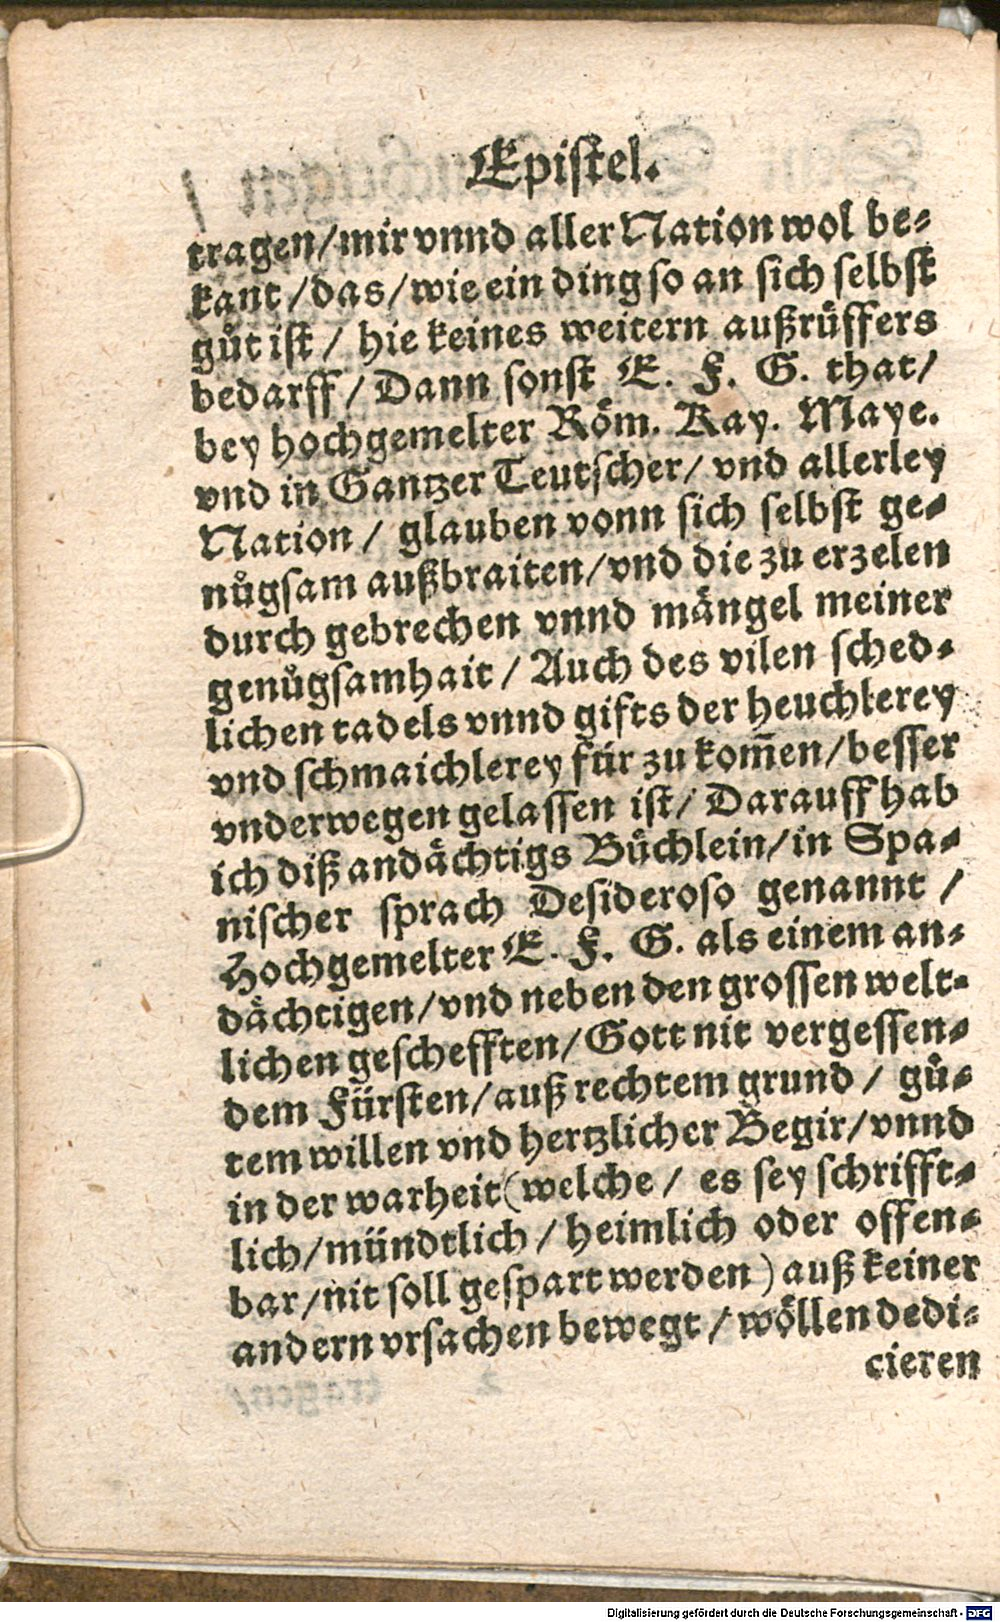 Epistel.
tragen/mir vnnd aller Nation wol be⸗
kant/das/wie ein ding so an sich selbst
gůt ist/ hie keines weitern außrůffers
bedarff/Dann sonst E. F. G. that/
bey hochgemelter Röm. Kay. Maye.
vnd in Gantzer Teutscher/ vnd allerley
Nation/ glauben vonn sich selbst ge⸗
nůgsam außbraiten/vnd die zu erzelen
durch gebrechen vnnd mängel meiner
genůgsamhait/ Auch des vilen sched⸗
lichen tadels vnnd gifts der heuchlerey
vnd schmaichlerey für zu kom̄en/besser
vnderwegen gelassen ist/ Darauff hab
ich diß andächtigs Büchlein/in Spa⸗
nischer sprach Desideroso genannt/
Hochgemelter E. F. G. als einem an⸗
dächtigen/vnd neben den grossen welt⸗
lichen geschefften/Gott nit vergessen⸗
dem Fürsten/auß rechtem grund/ gů⸗
tem willen vnd hertzlicher Begir/vnnd
in der warheit(welche/ es sey schrifft⸗
lich/mündtlich/heimlich oder offen⸗
bar/nit soll gespart werden) auß keiner
andern vrsachen bewegt/wöllen dedi⸗
cieren
Digitalisierung gefördert durch die Deutsche Forschungsgemeinschaft - DFG